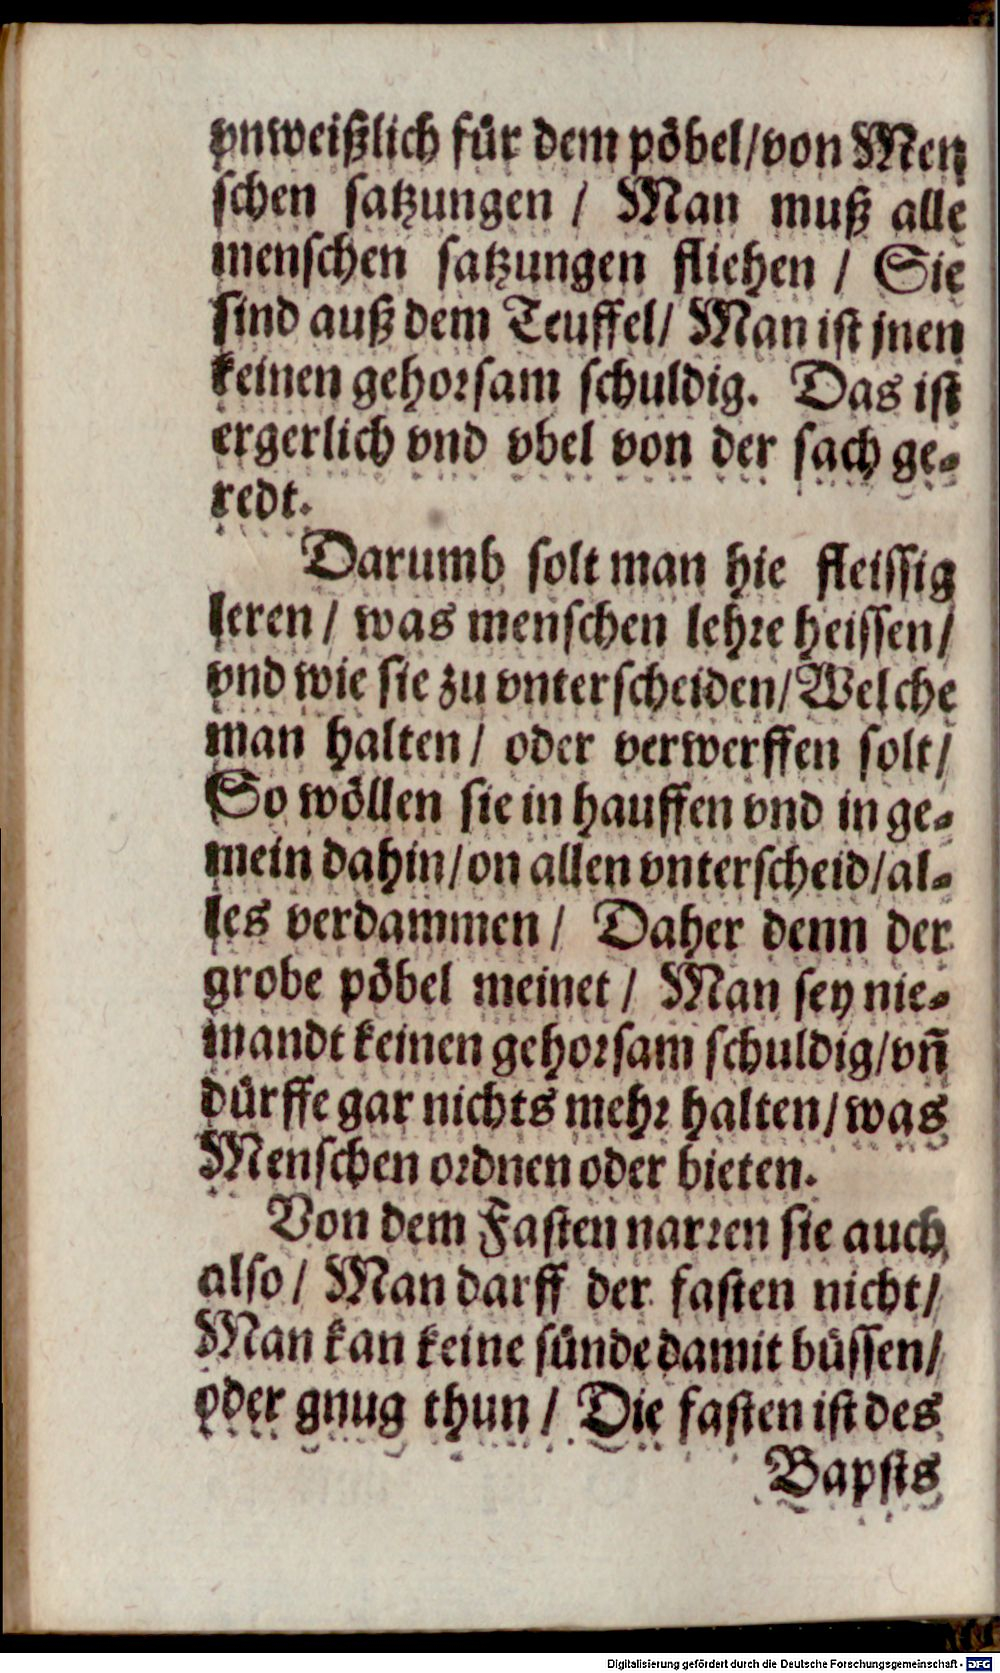 vnweißlich für dem pöbel/von Men
schen satzungen / Man muß alle
menschen satzungen fliehen / Sie
sind auß dem Teuffel/ Man ist jnen
keinen gehorsam schuldig. Das ist
ergerlich vnd vbel von der sach ge-
redt.
Darumb solt man hie fleissig
leren / was menschen lehre heissen/
vnd wie sie zu vnterscheiden/Welche
man halten / oder verwerffen solt/
So wöllen sie in hauffen vnd in ge-
mein dahin/on allen vnterscheid/al-
les verdammen / Daher denn der
grobe pöbel meinet / Man sey nie-
mandt keinen gehorsam schuldig/vñ
dürffe gar nichts mehr halten/was
Menschen ordnen oder bieten.
Von dem Fasten narren sie auch
also / Man darff der fasten nicht/
Man kan keine sünde damit büssen/
oder gnug thun / Die fasten ist des
Bapsts
Digitalisierung gefördert durch die Deutsche Forschungsgemeinschaft - DFG